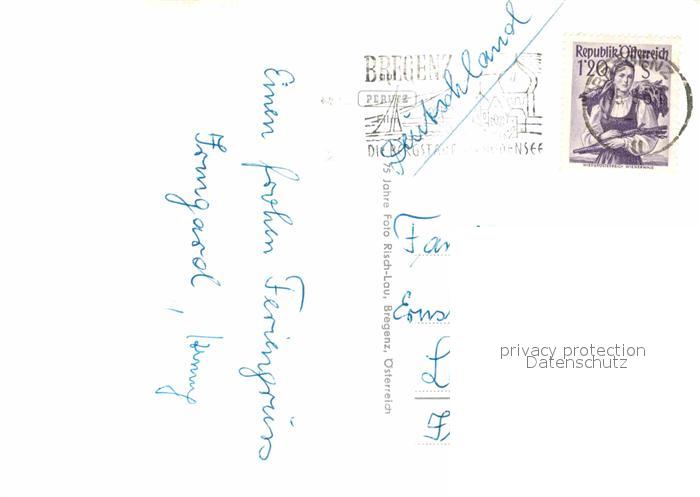 Einen frohen Feriengruss
Irmgard,
BREGENZ
PERUTZ
FILM
DIE BERGSTADT AM BODENSEE
Deutschland
Republik Österreich
1'20 S
NIEDERÖSTERREICH WIENERWALD
75 Jahre Foto Risch-Lau, Bregenz, Österreich
Fam
Erns
privacy protection
Datenschutz